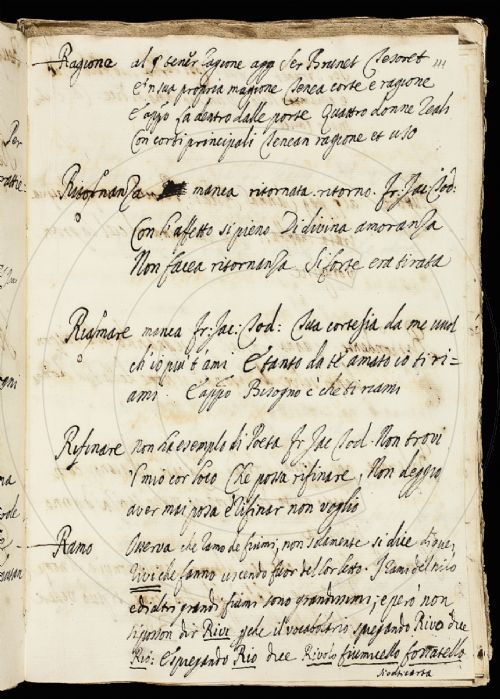 Ragione al § tener ragione agg. Ser Brunet Tesoret
E'n sua propria magione Tenea corte e ragione
E appo Là dentro dalle porte Quattro donne reali
Con corti principali Tenean ragione et uso
Ritornanza manca ritornata ritorno. Fr: Jac: Tod:
Con l'affetto si pieno Di divina amoranza
Non facea ritornanza Si forte era tirata
Riamare manca Fr: Jac: Tod: Sua cortesia da me vuol
ch'io più t'ami E tanto da te amato io ti ri=
ami. E appo Bisogno è che ti riami
Rifinare non ha esemplo di Poeta Fr Jac Tod. Non trovi
'l mio cor loco Che possa rifinare, Non deggio
aver mai posa E rifinar non voglio
Ramo Osserva che Ramo de fiumi, non solamente si dice
Rivi che fanno uscendo fuor del lor letto. I rami del nilo
ed altri grandi fiumi sono grandissimi, e pero non
si posson dir Rivi perche il vocabolario spiegando Rivo dice
Rio: e spiegando Rio dice Rivolo fiumicello fossatello